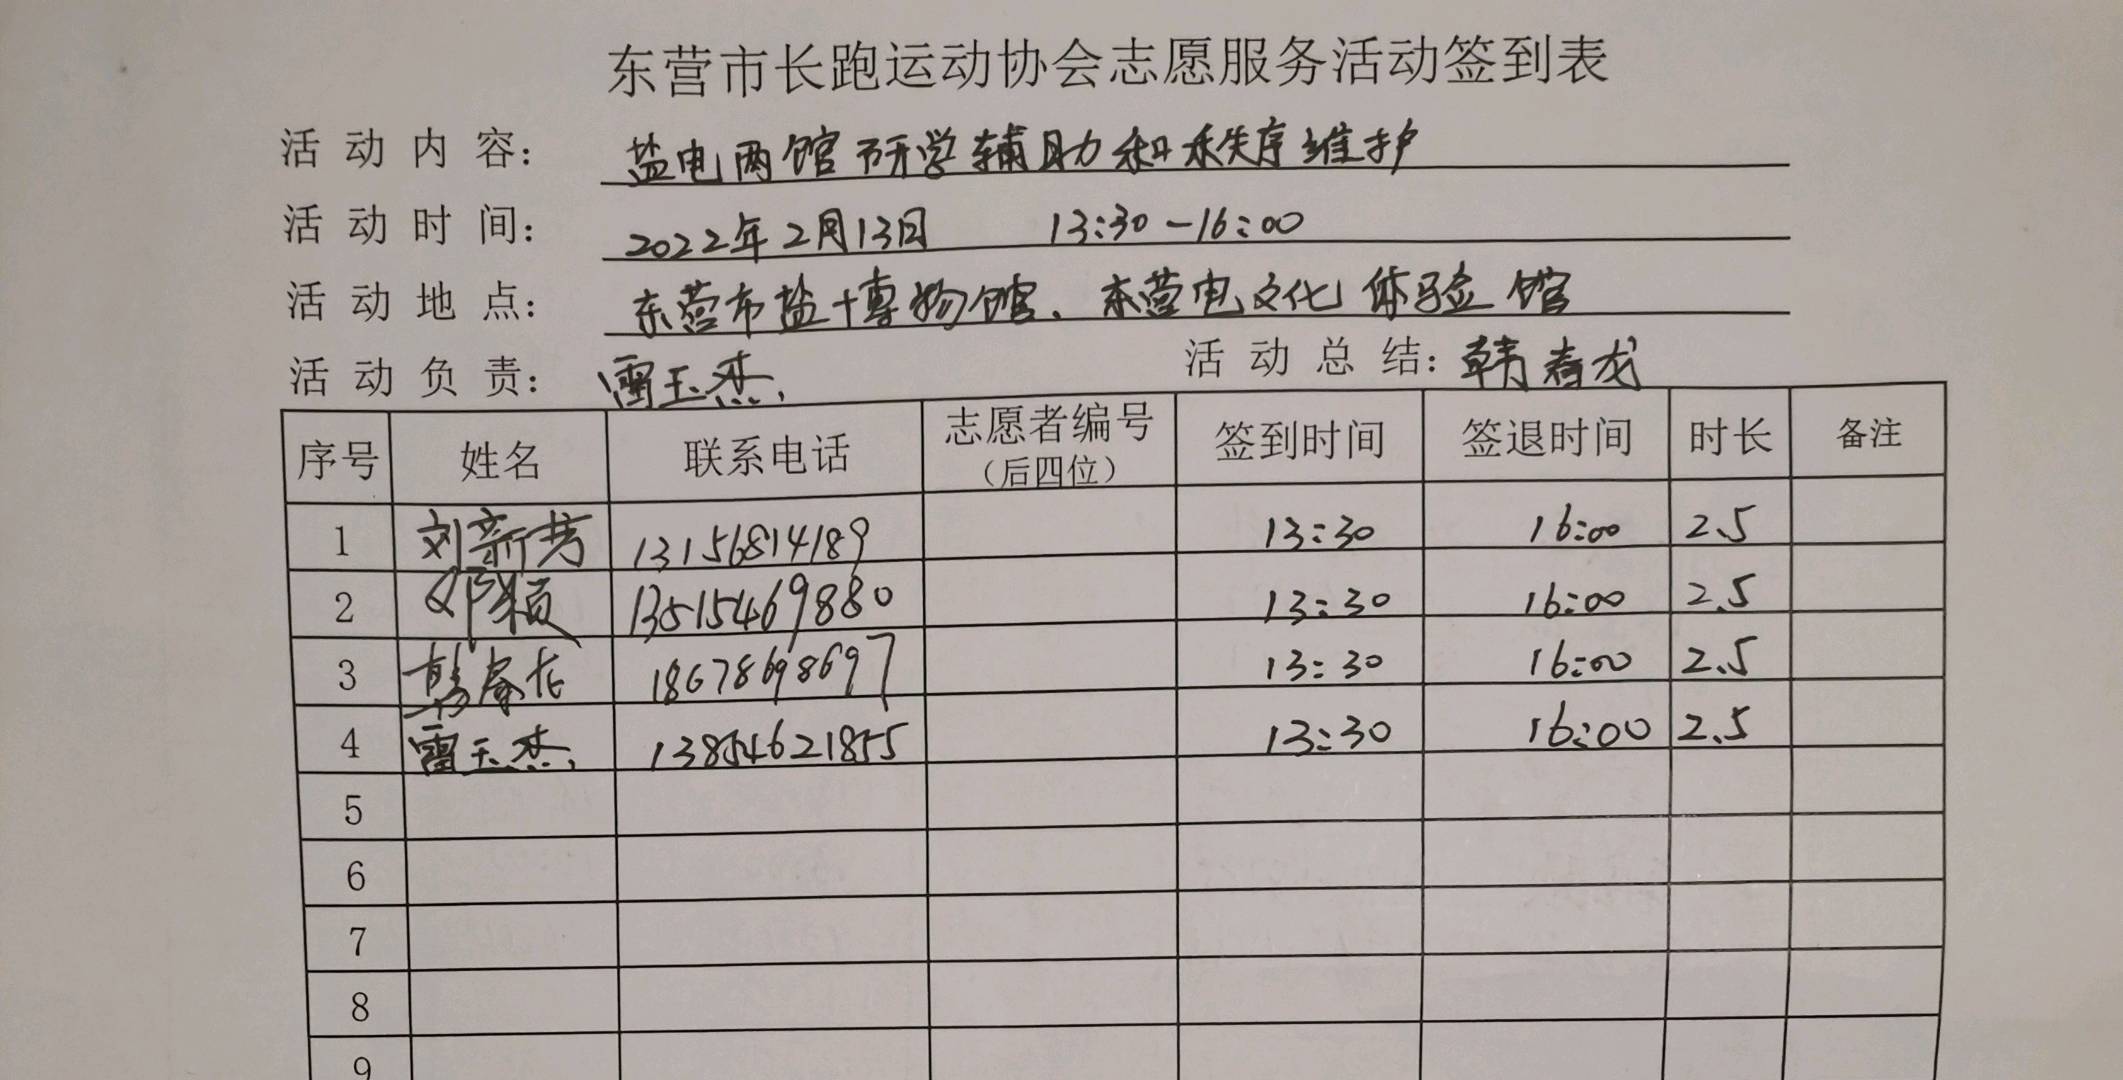 东营市长跑运动协会志愿服务活动签到表
活动内容: 盐电两馆研学辅助和秩序维护
活动时间: 2022年2月13日 13:30-16:00
活动地点: 东营市盐博物馆、东营电文化体验馆
活动负责: 雷玉杰 活动总结: 韩春龙
序号 姓名 联系电话 志愿者编号 签到时间 签退时间 时长 备注
(后四位)
1 刘新芳 13156814189 13:30 16:00 2.5
2 邓颖 13515469880 13:30 16:00 2.5
3 韩春龙 18678698697 13:30 16:00 2.5
4 雷玉杰 13854621855 13:30 16:00 2.5
5
6
7
8
9